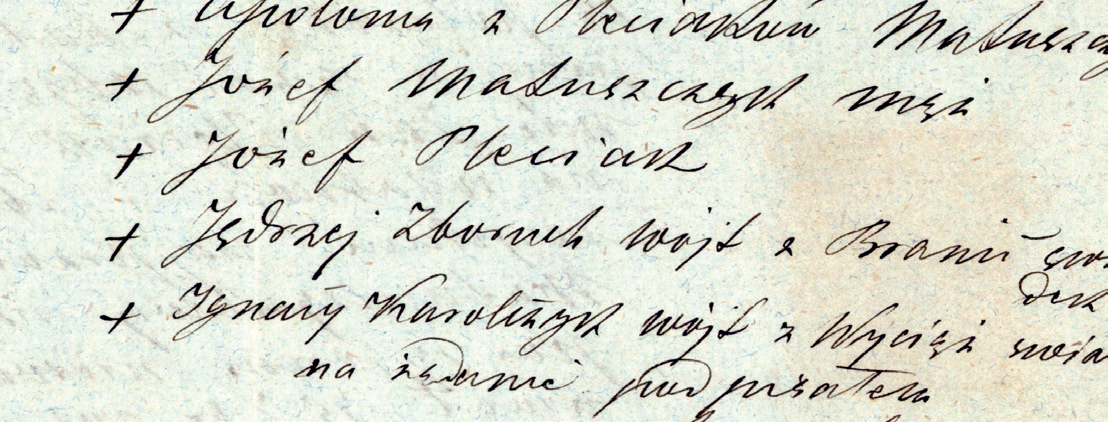 + Apolonia z Pleciaków Matuszcz
+ Józef Matuszczyk mąż
+ Józef Pleciak
+ Jędrzej Zboruch wójt z Branic świa
dek
+ Ignacy Karolczyk wójt z Wyciąż świa
na żądanie podpisałem